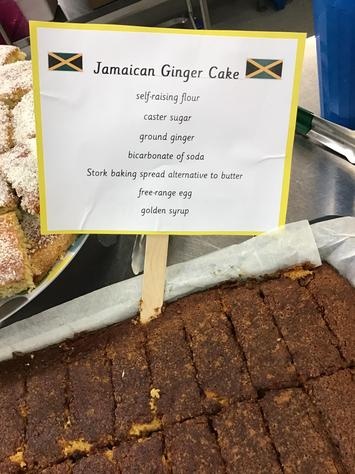 Jamaican Ginger Cake
self-raising flour
caster sugar
ground ginger
bicarbonate of soda
Stork baking spread alternative to butter
free-range egg
golden syrup